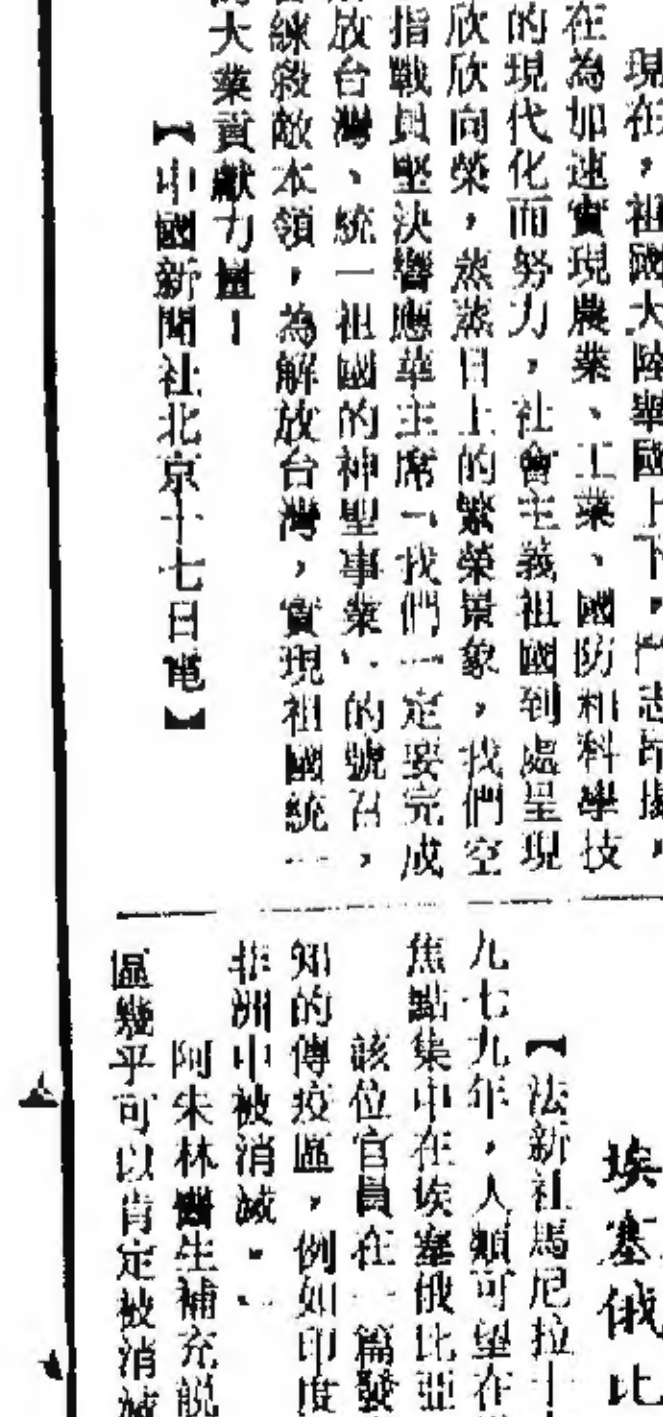 現在，祖國大陸舉國上下，鬥志昂揚，
在為加速實現農業、工業、國防和科學技
的現代化而努力，社會主義祖國到處呈現
欣欣向榮，蒸蒸日上的繁榮景象，我們空
指戰員堅決響應華主席「我們一定要完成
放台灣、統一祖國的神聖事業」的號召，
練殺敵本領，為解放台灣，實現祖國統一
大業貢獻力量！
【中國新聞社北京十七日電】
埃塞俄比
【法新社馬尼拉十
九七九年，人類可望在
焦點集中在埃塞俄比亞
該位官員在一篇發
知的傳疫區，例如印度
非洲中被消滅。
阿朱林醫生補充說
區幾乎可以肯定被消滅